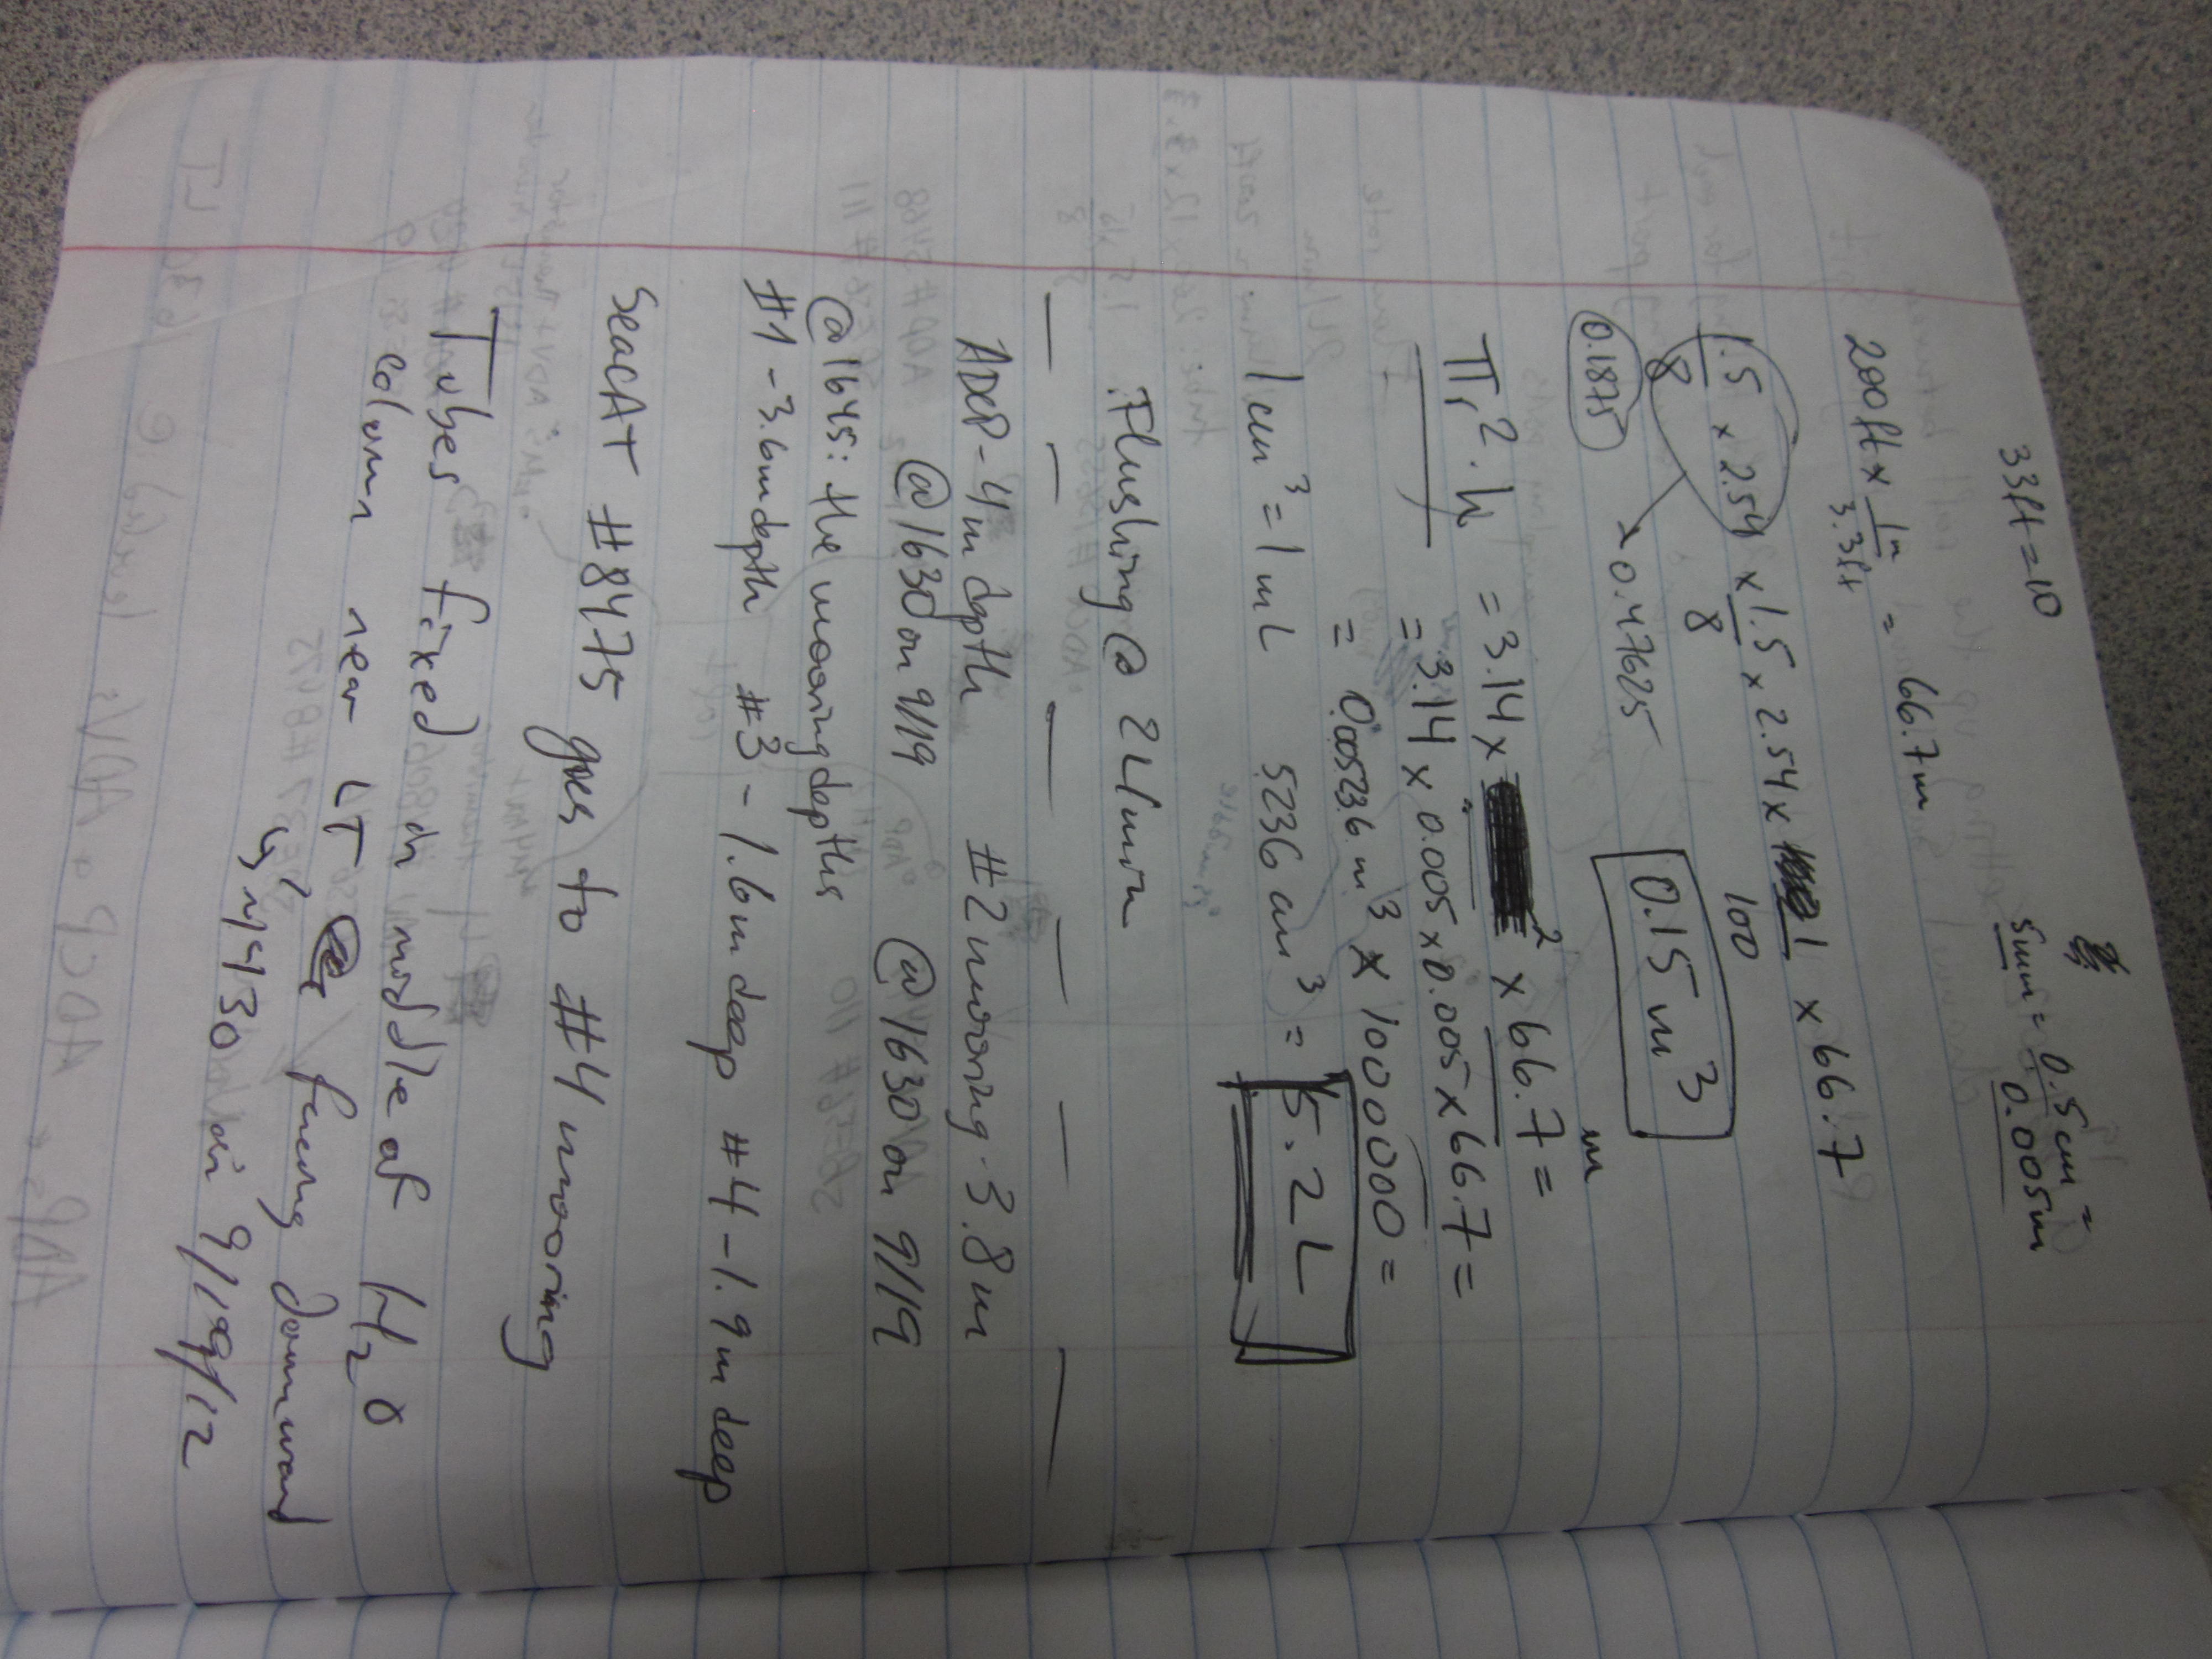 33ft = 10
5mm = 0.5cm =
0.005m
200ft x 1m = 66.7m
3.3ft
1.5 x 2.54 x 1.5 x 2.54 x 1 x 66.7
8 8 100
x 0.47625
0.1875
0.15 m³
m
πr² · h = 3.14 x ² x 66.7 =
= 3.14 x 0.005 x 0.005 x 66.7 =
= 0.005236 m³ x 1000000 =
1 cm³ = 1 mL 5236 cm³ = 5.2 L
Flushing @ 2L/min
ADCP - 4m depth #2 mooring · 3.8m
@1630 on 9/19 @1630 on 9/19
@1645: the mooring depths
#1 - 3.6m depth #3 - 1.6m deep #4 - 1.9m deep
SeaCAT #8475 goes to #4 mooring
Tubes fixed in middle of H₂O
column near LT facing downward
~1430 on 9/19/12